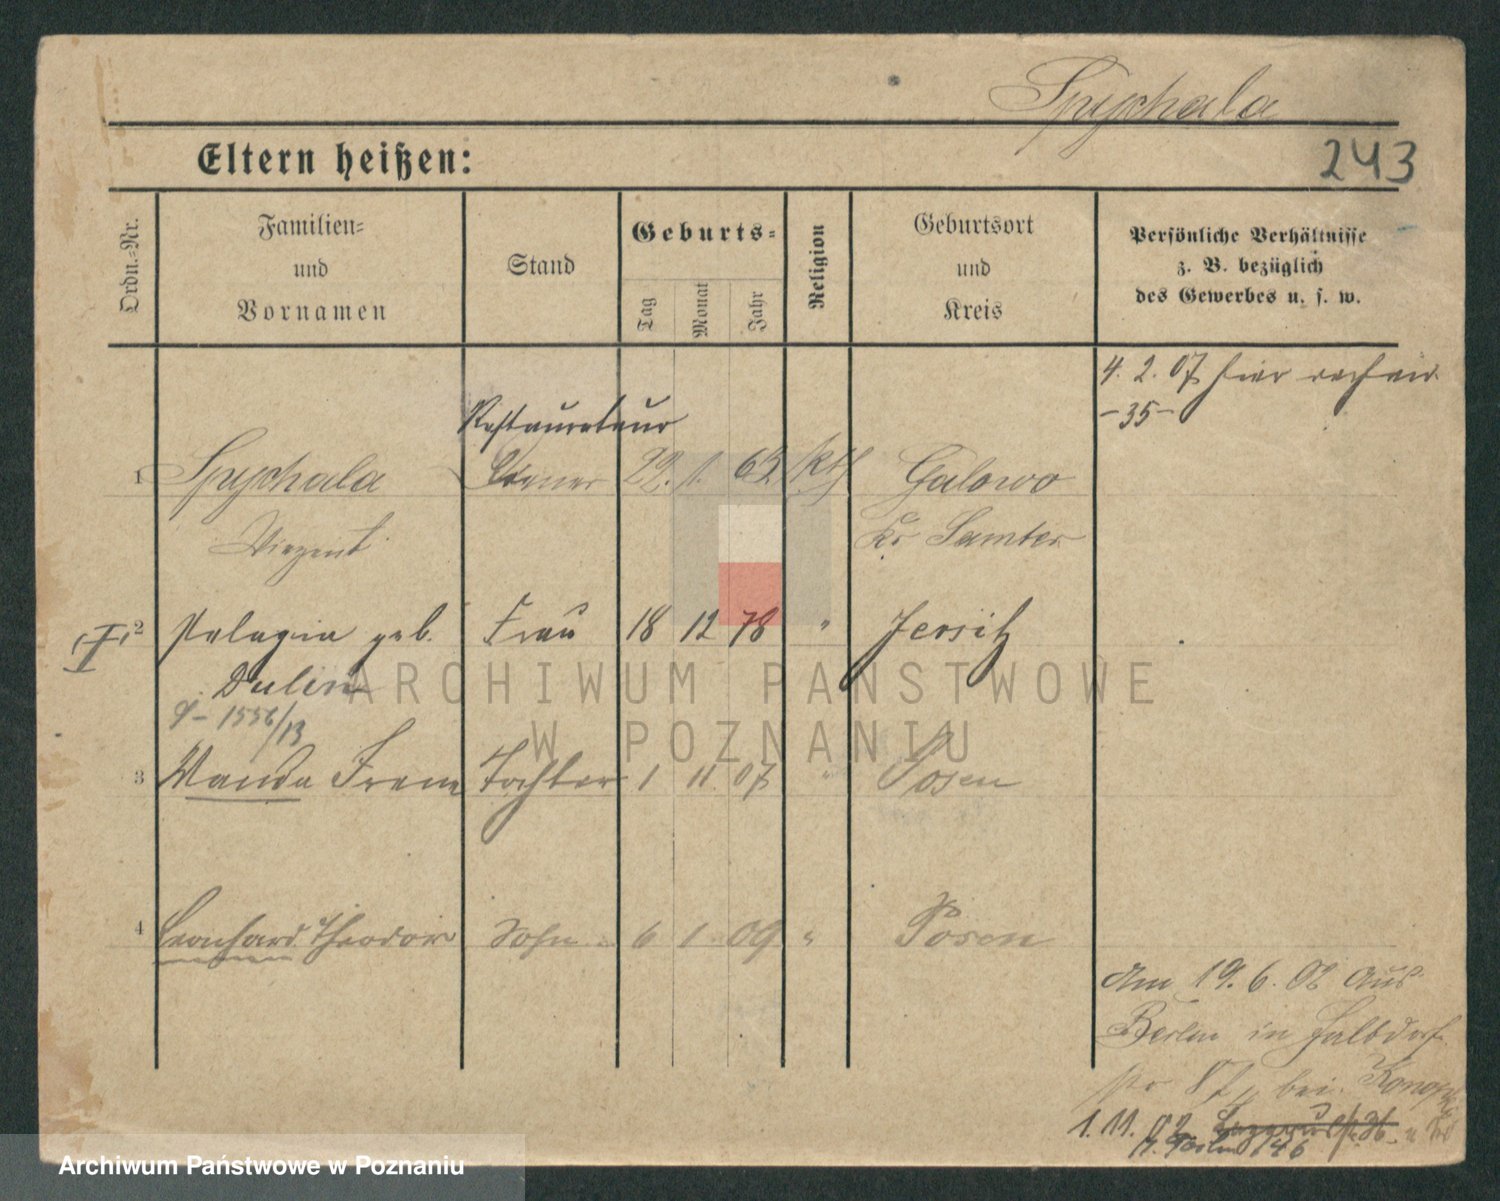 Spychala
Eltern heißen:
243
Ordn.-Nr.
Familien-
und
Vornamen
Stand
Geburts-
Tag
Monat
Jahr
Religion
Geburtsort
und
Kreis
Persönliche Verhältnisse
z. B. bezüglich
des Gewerbes u. s. w.
4. 2. 07 hier
-35-
Restaurateur
1 Spychala 22. 1. 63 kth Galowo
Vinzent Kr Samter
2 Pelagia geb. Frau 18 12 78 " Jersitz
Dulin
1556/13
3 Wanda Irene Tochter 1 11 07 " Posen
4 Leonhard Theodor Sohn 6 1 09 " Posen
Am 19. 6. 02 aus
Berlin in Halbdorf
str 87 bei
1. 11. 02
n. Berlin 146
ARCHIWUM PAŃSTWOWE
W POZNANIU
Archiwum Państwowe w Poznaniu